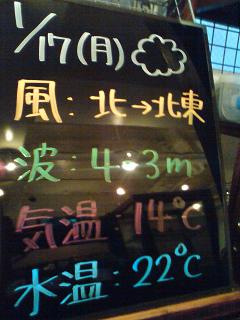 1/17(月)
風:北→北東
波:4.3m
気温 14℃
水温:22℃